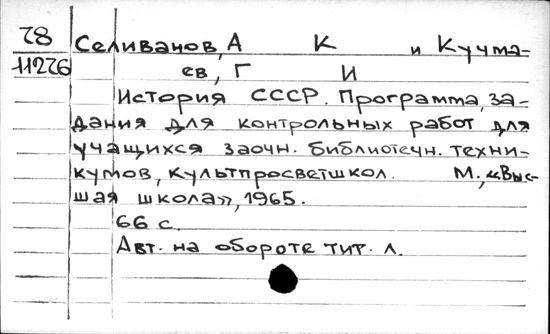 78
11276
Селиванов, А К и Кучма-
ев, Г И
История СССР. Программа, за-
дания для контрольных работ для
учащихся заочн. библиотечн. техни-
кумов, культпросветшкол. М., «Выс-
шая школа», 1965.
66 с.
Авт. на обороте тит. л.